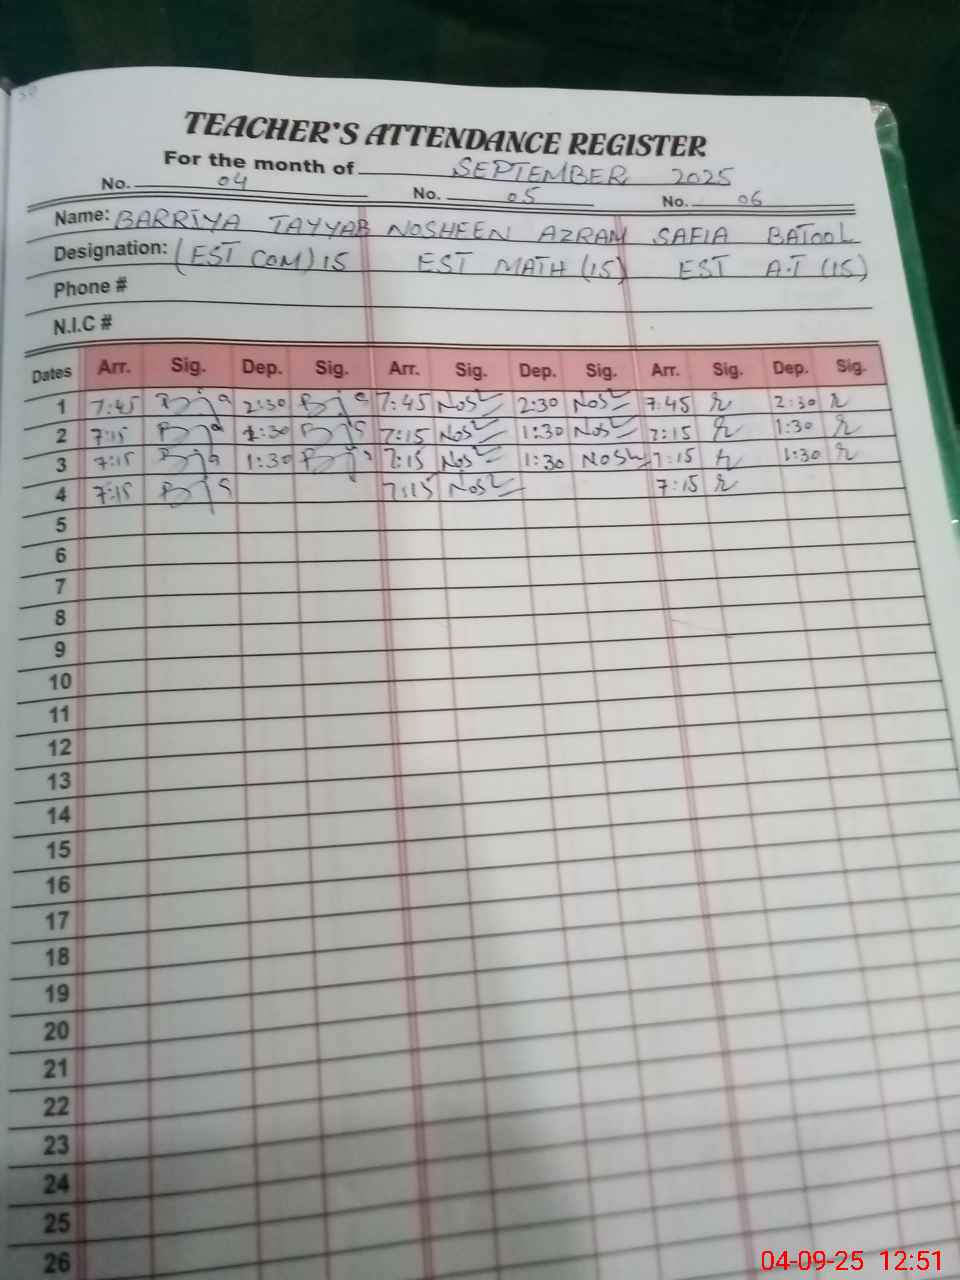 TEACHER'S ATTENDANCE REGISTER
For the month of SEPTEMBER 2025
No. 04 No. 05 No. 06
Name: BARRIYA TAYYAB NOSHEEN AZRAM SAFIA BATOOL
Designation: (EST COM) 15 EST MATH (15) EST A.I (15)
Phone #
N.I.C #
Dates Arr. Sig. Dep. Sig. Arr. Sig. Dep. Sig. Arr. Sig. Dep. Sig.
1 7:45 2:30 7:45 Nos 2:30 Nos 7:45 2:30
2 7:15 1:30 7:15 Nos 1:30 Nos 7:15 1:30
3 7:15 1:30 7:15 Nos 1:30 Nosh 7:15 1:30
4 7:15 7:15 Nos 7:15
5
6
7
8
9
10
11
12
13
14
15
16
17
18
19
20
21
22
23
24
25
26
04-09-25 12:51